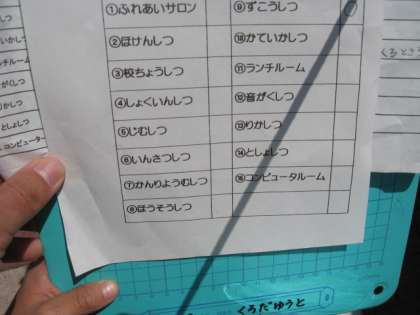 ①ふれあいサロン
②ほけんしつ
③校ちょうしつ
④しょくいんしつ
⑤じむしつ
⑥いんさつしつ
⑦かんりようむしつ
⑧ほうそうしつ
⑨ずこうしつ
⑩かていかしつ
⑪ランチルーム
⑫音がくしつ
⑬りかしつ
⑭としょしつ
⑮コンピュータルーム
くろだゆうと